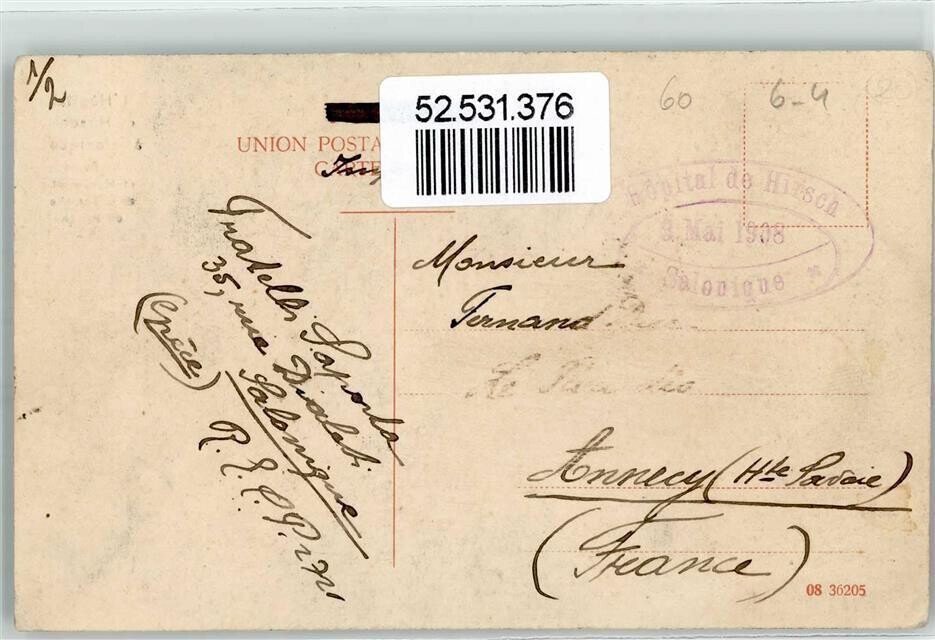 1/2
52.531.376
60
6-4
UNION POSTA
CARTE
Hôpital de Hirsch
9 Mai 1908
Salonique
Fratelli Saporta
35, rue Djaladi
Salonique
(Grèce)
Monsieur
Fernand
Annecy (Hte Savoie)
(France)
08 36205